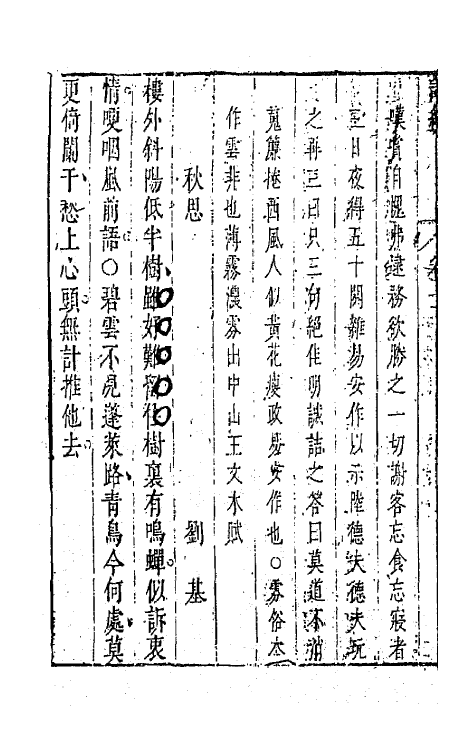 嘆賞自愧弗逮務欲勝之一切謝客忘食忘寢者
三日夜得五十闋雜易安作以示陸德夫德夫玩
之再三曰只三句絕佳明誠詰之答曰莫道不消
蒐簾捲西風人似黃花瘦政易安作也○霧俗本
作雲非也薄霧濃雰出中山王文木賦
秋思　劉基
樓外斜陽低半樹雖好難留住樹裏有鳴蟬似訴衷
情哽咽風前語○碧雲不見蓬萊路青鳥今何處莫
更倚闌干愁上心頭無計推他去